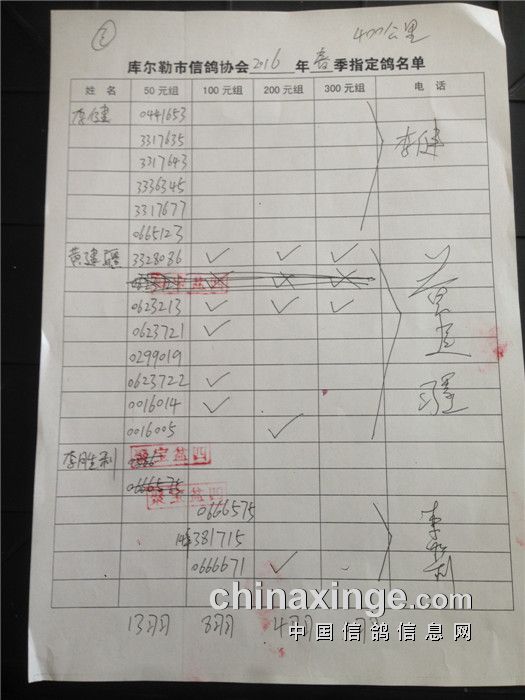 ② 400公里
库尔勒市信鸽协会2016年春季指定鸽名单
姓 名 50元组 100元组 200元组 300元组 电 话
李健 0441653
3317635
3317643 李健
3336345
3317677
0665123
黄建疆 3328036 ✓ ✓ ✓
0623213 ✓ ✓ ✓ 黄建疆
0623721 ✓
0299019
0623722 ✓
0016014 ✓
0016005 ✓
李胜利
0666575
0666575
381715 李胜利
0666671 ✓
13 8 4
www.chinaxinge.com
中国信鸽信息网